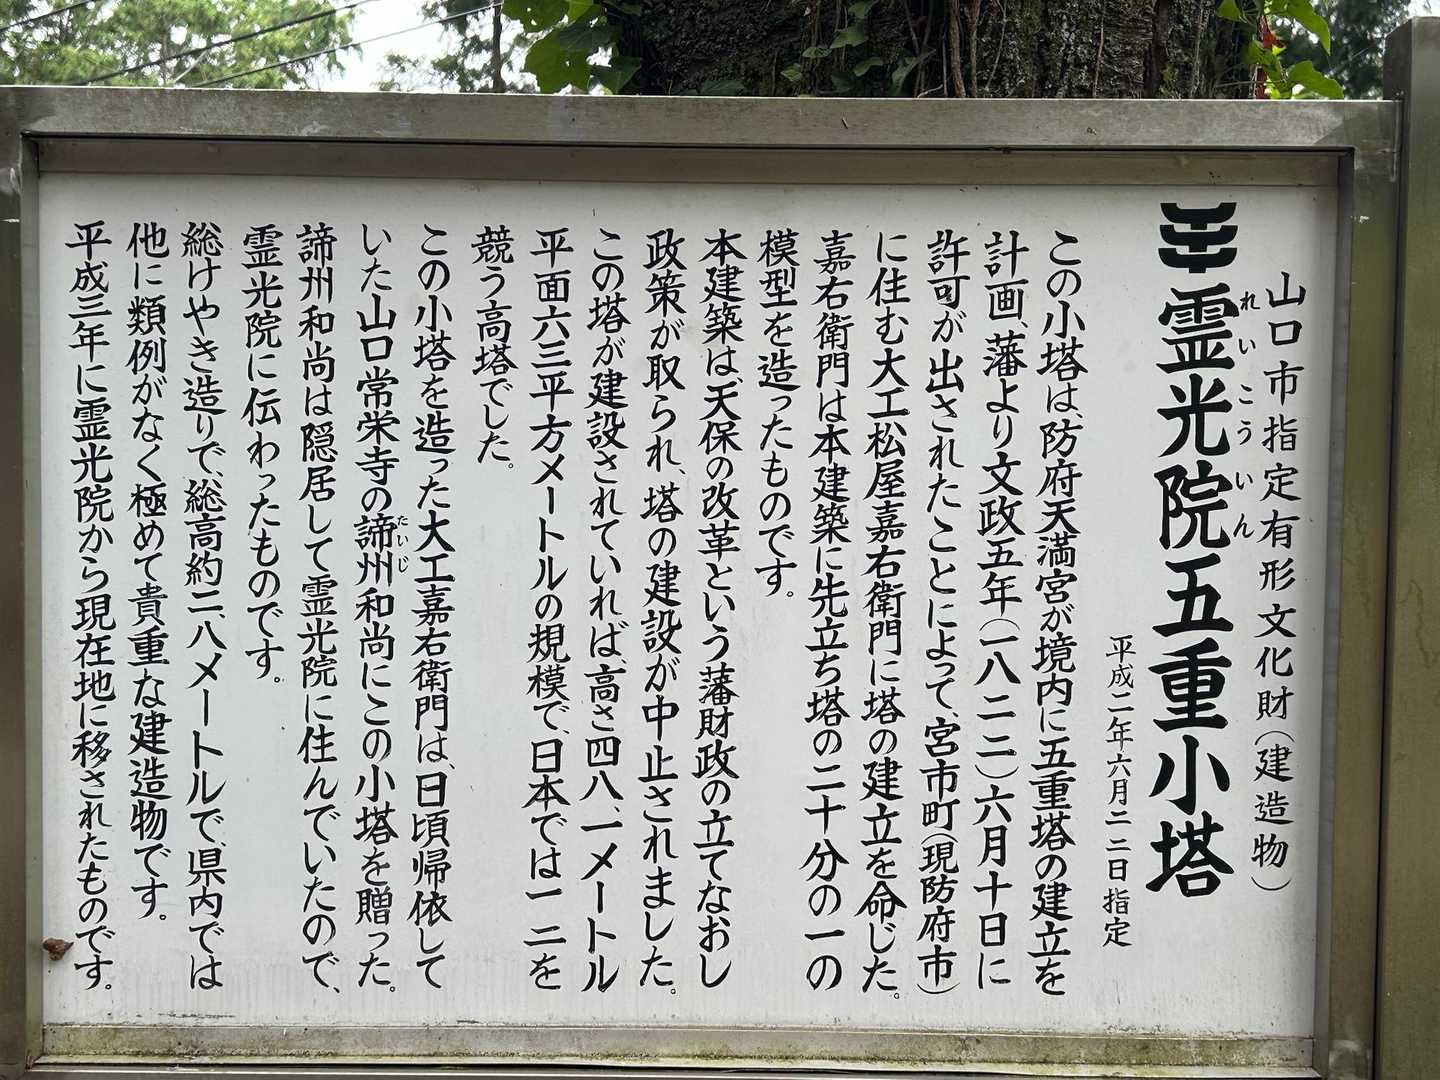 山口市指定有形文化財(建造物)
霊光院五重小塔
れいこういん
平成二年六月二二日指定
この小塔は、防府天満宮が境内に五重塔の建立を
計画、藩より文政五年(一八二二)六月十日に
許可が出されたことによって、宮市町(現防府市)
に住む大工松屋嘉右衛門に塔の建立を命じた。
嘉右衛門は本建築に先立ち塔の二十分の一の
模型を造ったものです。
本建築は、天保の改革という藩財政の立てなおし
政策が取られ、塔の建設が中止されました。
この塔が建設されていれば、高さ四八、一メートル
平面六三平方メートルの規模で、日本では一二を
競う高塔でした。
この小塔を造った大工嘉右衛門は、日頃帰依して
いた山口常栄寺の諦州和尚にこの小塔を贈った。
たいじ
諦州和尚は隠居して霊光院に住んでいたので、
霊光院に伝わったものです。
総けやき造りで、総高約二、八メートルで、県内では
他に類例がなく極めて貴重な建造物です。
平成三年に霊光院から現在地に移されたものです。